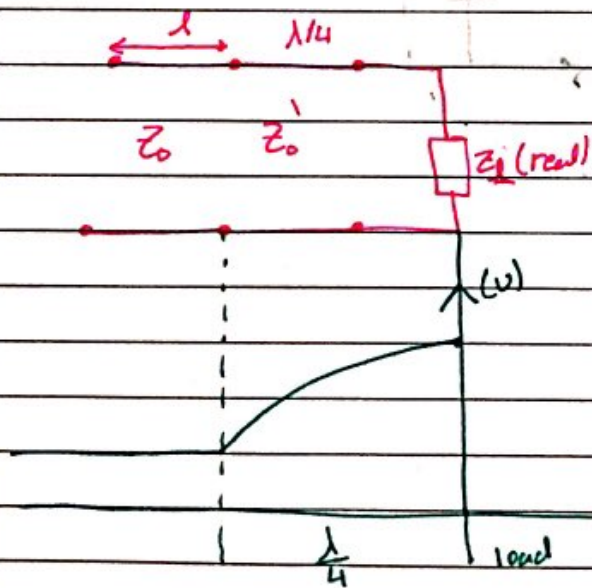 l λ/4
Z₀ Z₀'
Z_L (real)
(V)
λ/4 load